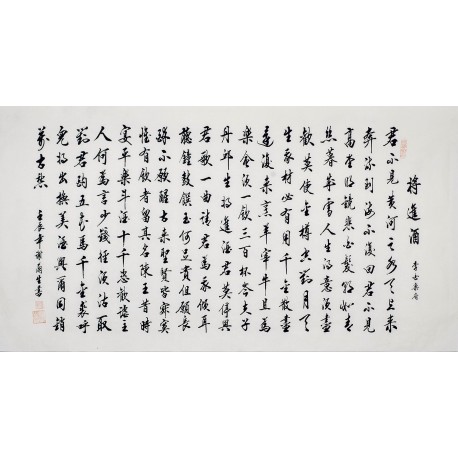 將進酒
君不見黃河之水天上來
奔流到海不復回君不見
高堂明鏡悲白髮朝如青
絲暮成雪人生得意須盡
歡莫使金樽空對月天
生我材必有用千金散盡
還復來烹羊宰牛且為
樂會須一飲三百杯岑夫子
丹邱生將進酒君莫停與
君歌一曲請君為我傾耳
聽鐘鼓饌玉何足貴但願長
醉不願醒古來聖賢皆寂寞
惟有飲者留其名陳王昔時
宴平樂斗酒十千恣歡謔主
人何為言少錢徑須沽取
對君酌五花馬千金裘呼
兒將出換美酒與爾同銷
萬古愁
壬辰年生書